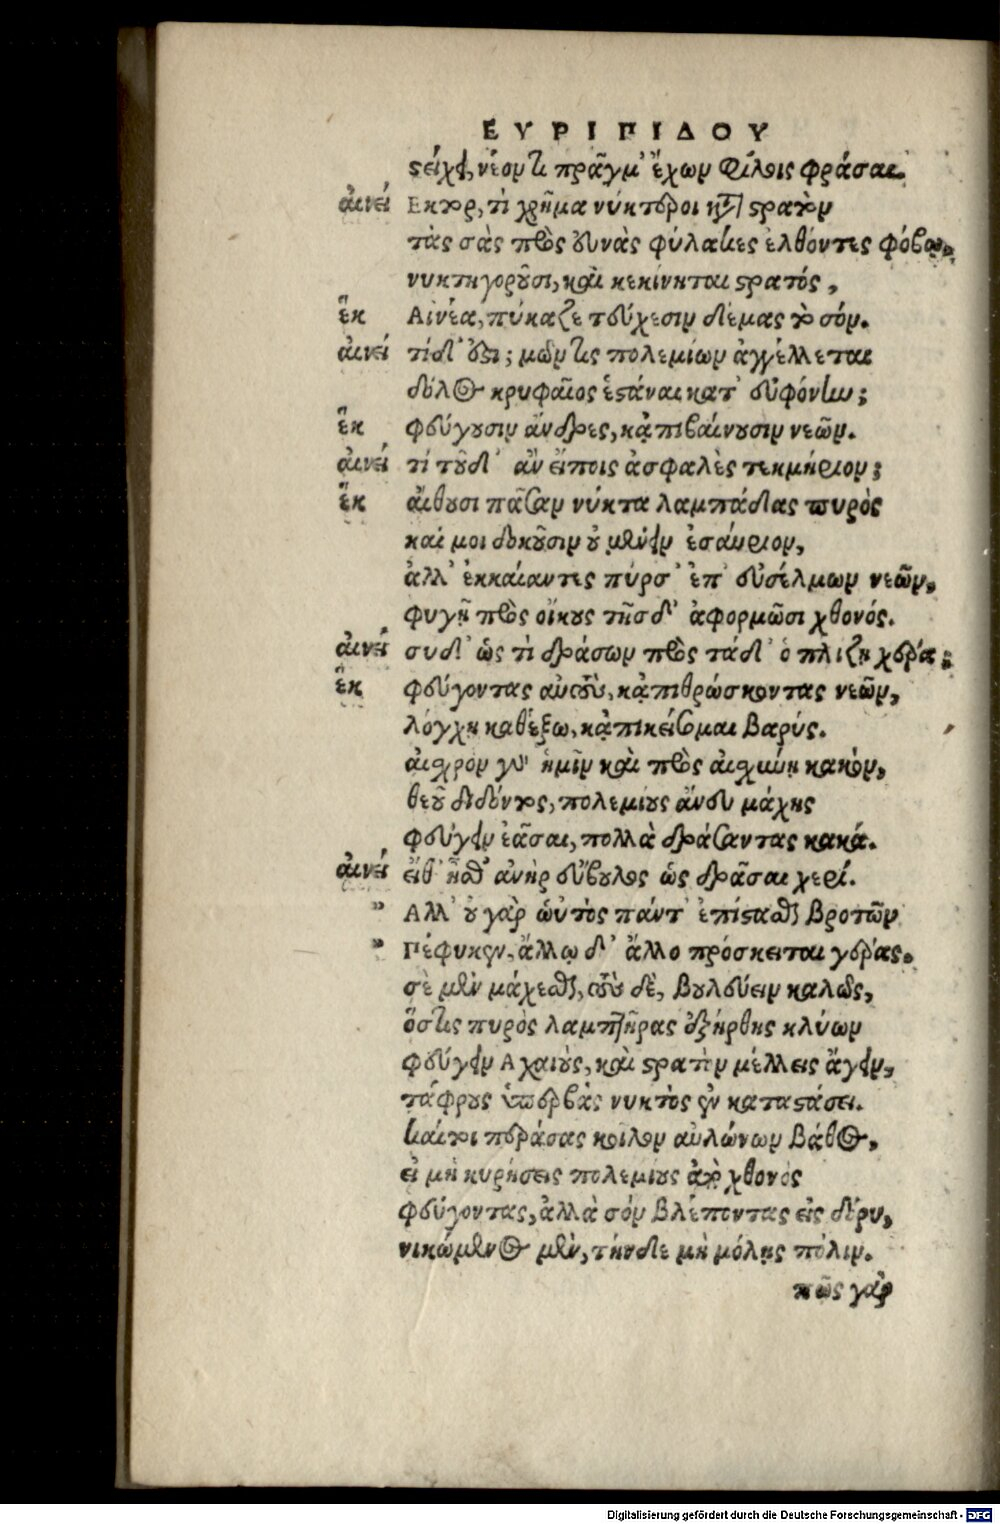 ΕΥΡΙΠΙΔΟΥ
στείχει, νέον τι πρᾶγμ' ἔχων φίλοις φράσαι.
αἰνεί Εκτορ, τί χρῆμα νύκτεροι κατὰ στρατὸν
τὰς σὰς πρὸς εὐνὰς φύλακες ἐλθόντες φόβῳ,
νυκτηγοροῦσι, καὶ κεκίνηται στρατός,
ἕκ Αἰνέα, πύκαζε τεύχεσιν δέμας τὸ σόν.
αἰνεί τί δ' ἔστι; μῶν τις πολεμίων ἀγγέλλεται
δόλος κρυφαῖος ἑστάναι κατ' εὐφρόνην;
ἕκ φεύγουσιν ἄνδρες, κἀπιβαίνουσιν νεῶν.
αἰνεί τί τοῦδ' ἂν εἴποις ἀσφαλὲς τεκμήριον;
ἕκ αἴθουσι πᾶσαν νύκτα λαμπάδας πυρὸς
καί μοι δοκοῦσιν οὐ μένειν ἐσαύριον,
ἀλλ' ἐκκαίαντες πύρσ' ἐπ' εὐσέλμων νεῶν,
φυγῇ πρὸς οἴκους τῆσδ' ἀφορμῶσι χθονός.
αἰνεί συ δ' ὡς τί δράσων πρὸς τάδ' ὁπλίζῃ χέρα;
ἕκ φεύγοντας αὐτοὺς, κἀπιθρώσκοντας νεῶν,
λόγχῃ καθέξω, κἀπικείσομαι βαρύς.
αἰσχρὸν γὰρ ἡμῖν καὶ πρὸς αἰσχύνῃ κακὸν,
θεοῦ διδόντος, πολεμίους ἄνευ μάχης
φεύγειν ἐᾶσαι, πολλὰ δράσαντας κακά.
αἰνεί εἴθ' ἦσθ' ἀνὴρ εὔβουλος ὡς δρᾶσαι χερί.
" Αλλ' οὐ γὰρ ὡυτὸς πάντ' ἐπίστασθαι βροτῶν
" Πέφυκεν, ἄλλῳ δ' ἄλλο πρόσκειται γέρας.
σὲ μὲν μάχεσθαι, τοὺς δὲ, βουλεύειν καλῶς,
ὅστις πυρὸς λαμπτῆρας ἐξήρθης κλύων
φεύγειν Αχαιοὺς, καὶ στρατὸν μέλλεις ἄγειν,
τάφρους ὑπερβὰς νυκτὸς ἐν καταστάσει.
καίτοι περάσας κοῖλον αὐλώνων βάθος,
εἰ μὴ κυρήσεις πολεμίους ἀπὸ χθονὸς
φεύγοντας, ἀλλὰ σὸν βλέποντας εἰς δόρυ,
νικώμενος μὲν, τήνδε μὴ μόλῃς πόλιν.
πῶς γὰρ
Digitalisierung gefördert durch die Deutsche Forschungsgemeinschaft - DFG